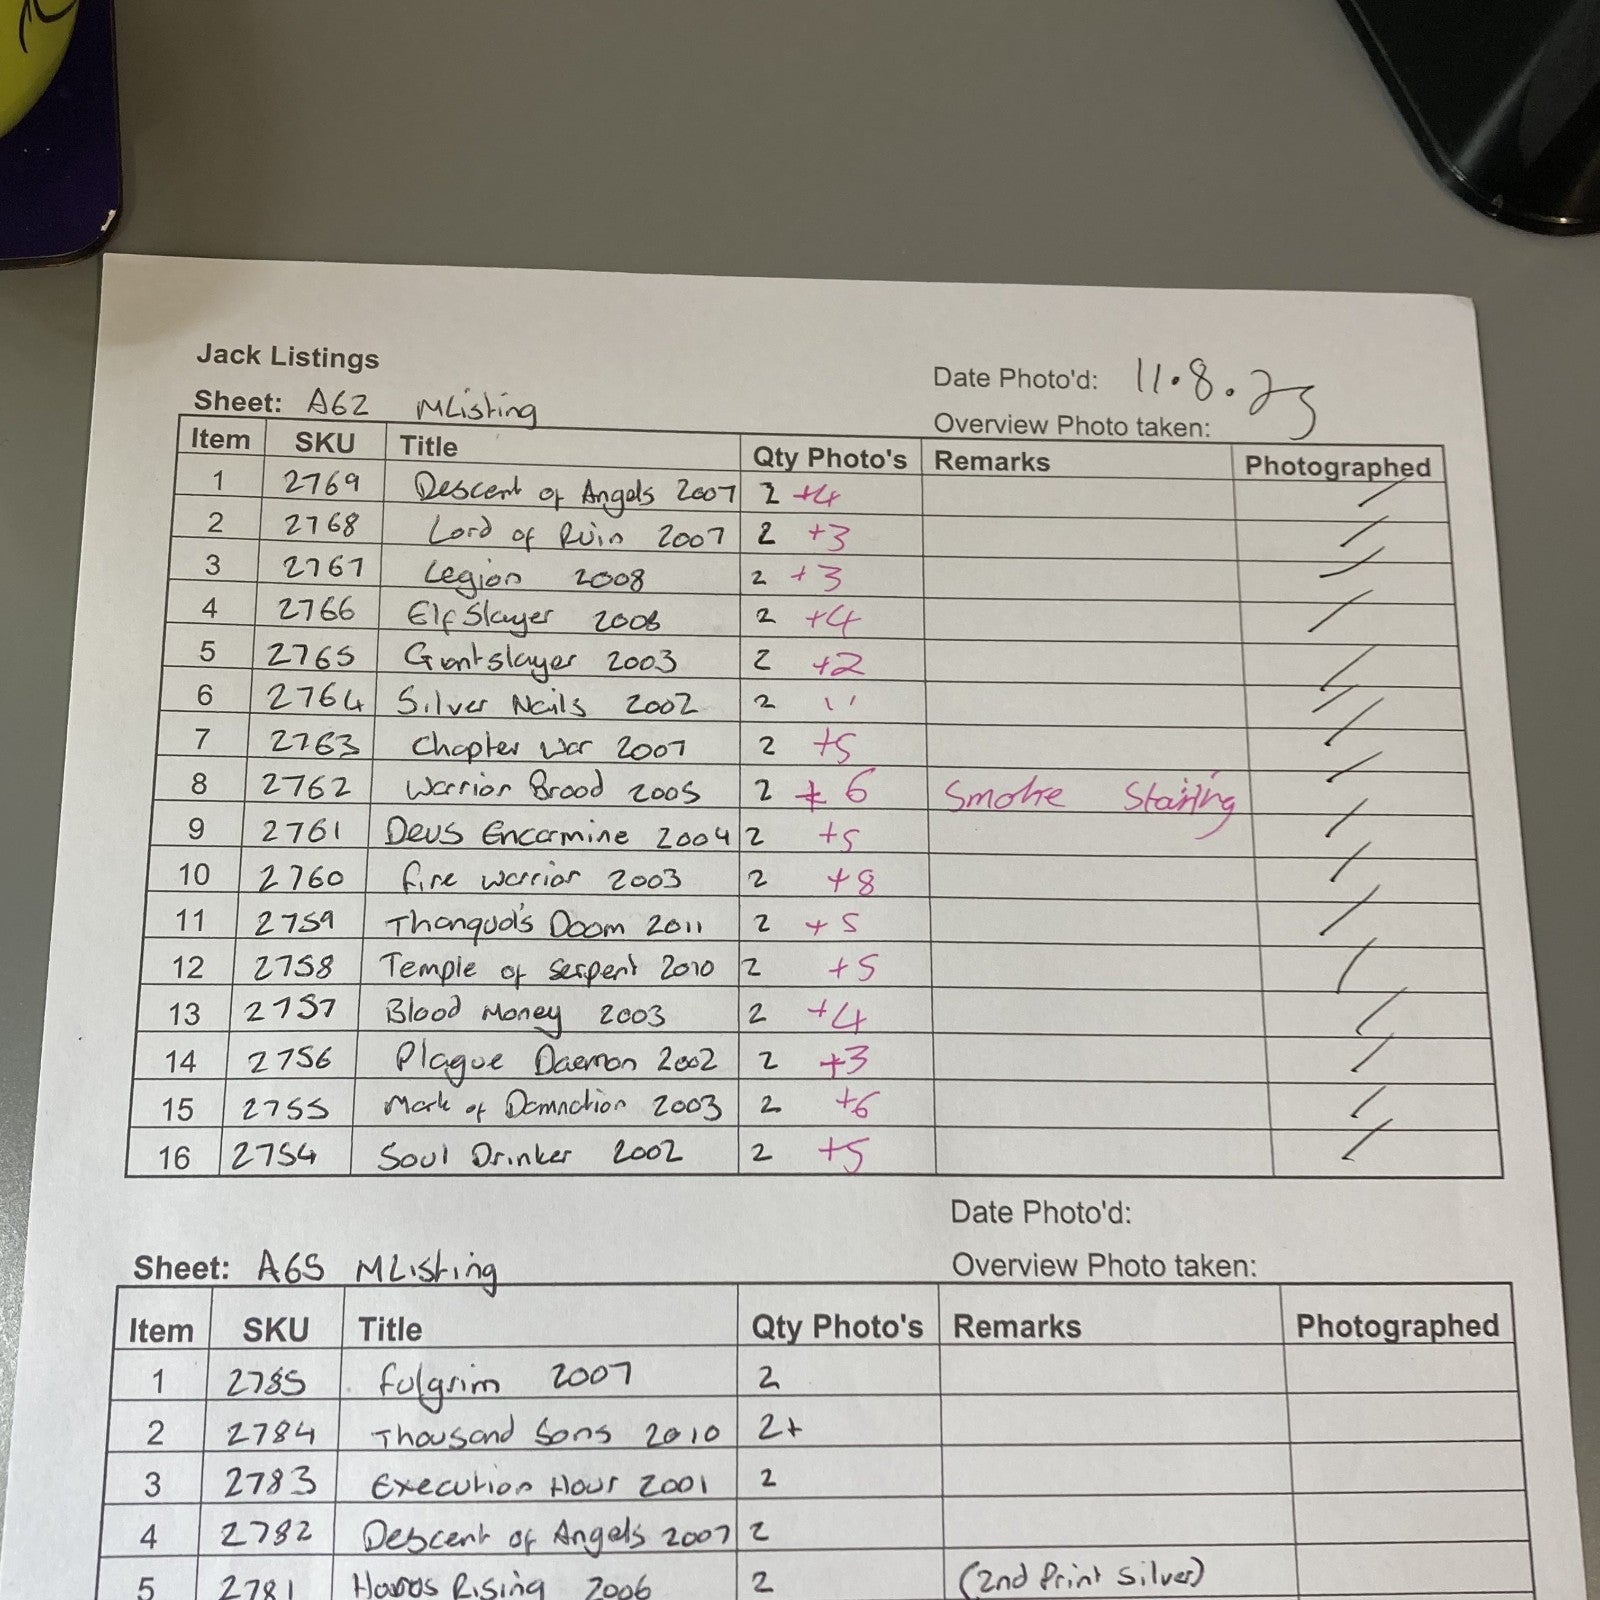 Jack Listings
Date Photo'd: 11.8.23
Sheet: A62 MListing
Overview Photo taken:
Item SKU Title Qty Photo's Remarks Photographed
1 2769 Descent of Angels 2007 2 +4 /
2 2768 Lord of Ruin 2007 2 +3 /
3 2767 Legion 2008 2 +3 /
4 2766 Elf Slayer 2008 2 +4 /
5 2765 Giantslayer 2003 2 +2 /
6 2764 Silver Nails 2002 2 '' /
7 2763 Chapter War 2007 2 +5 /
8 2762 Warrior Brood 2005 2 + 6 Smoke Staining /
9 2761 Deus Encarmine 2004 2 +5 /
10 2760 fire warrior 2003 2 +8 /
11 2759 Thanquol's Doom 2011 2 +5 /
12 2758 Temple of Serpent 2010 2 +5 /
13 2757 Blood Money 2003 2 +4 /
14 2756 Plague Daemon 2002 2 +3 /
15 2755 Mark of Damnation 2003 2 +6 /
16 2754 Soul Drinker 2002 2 +5 /
Date Photo'd:
Sheet: A65 MListing
Overview Photo taken:
Item SKU Title Qty Photo's Remarks Photographed
1 2785 fulgrim 2007 2
2 2784 Thousand Sons 2010 2+
3 2783 Execution Hour 2001 2
4 2782 Descent of Angels 2007 2
5 2781 Rising 2006 2 (2nd Print Silver)